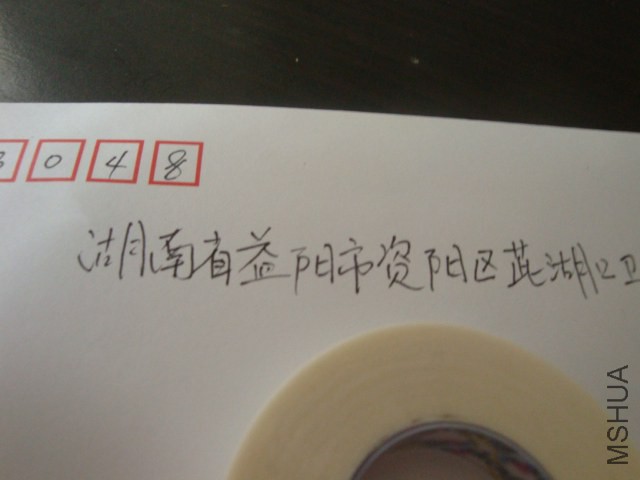 3048
湖南省益阳市资阳区茈湖口卫
MSHUA